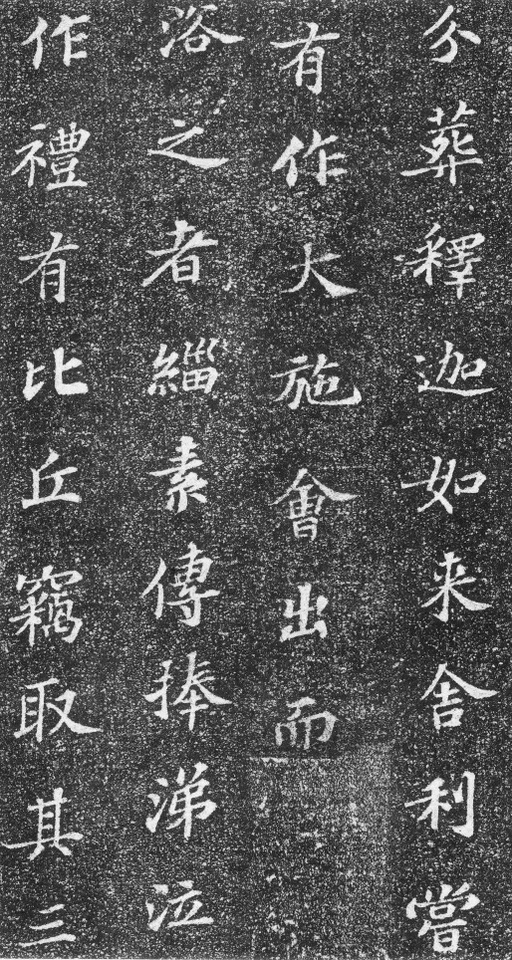 分葬釋迦如来舎利嘗
有作大施會出而
浴之者緇素傳捧涕泣
作禮有比丘竊取其三